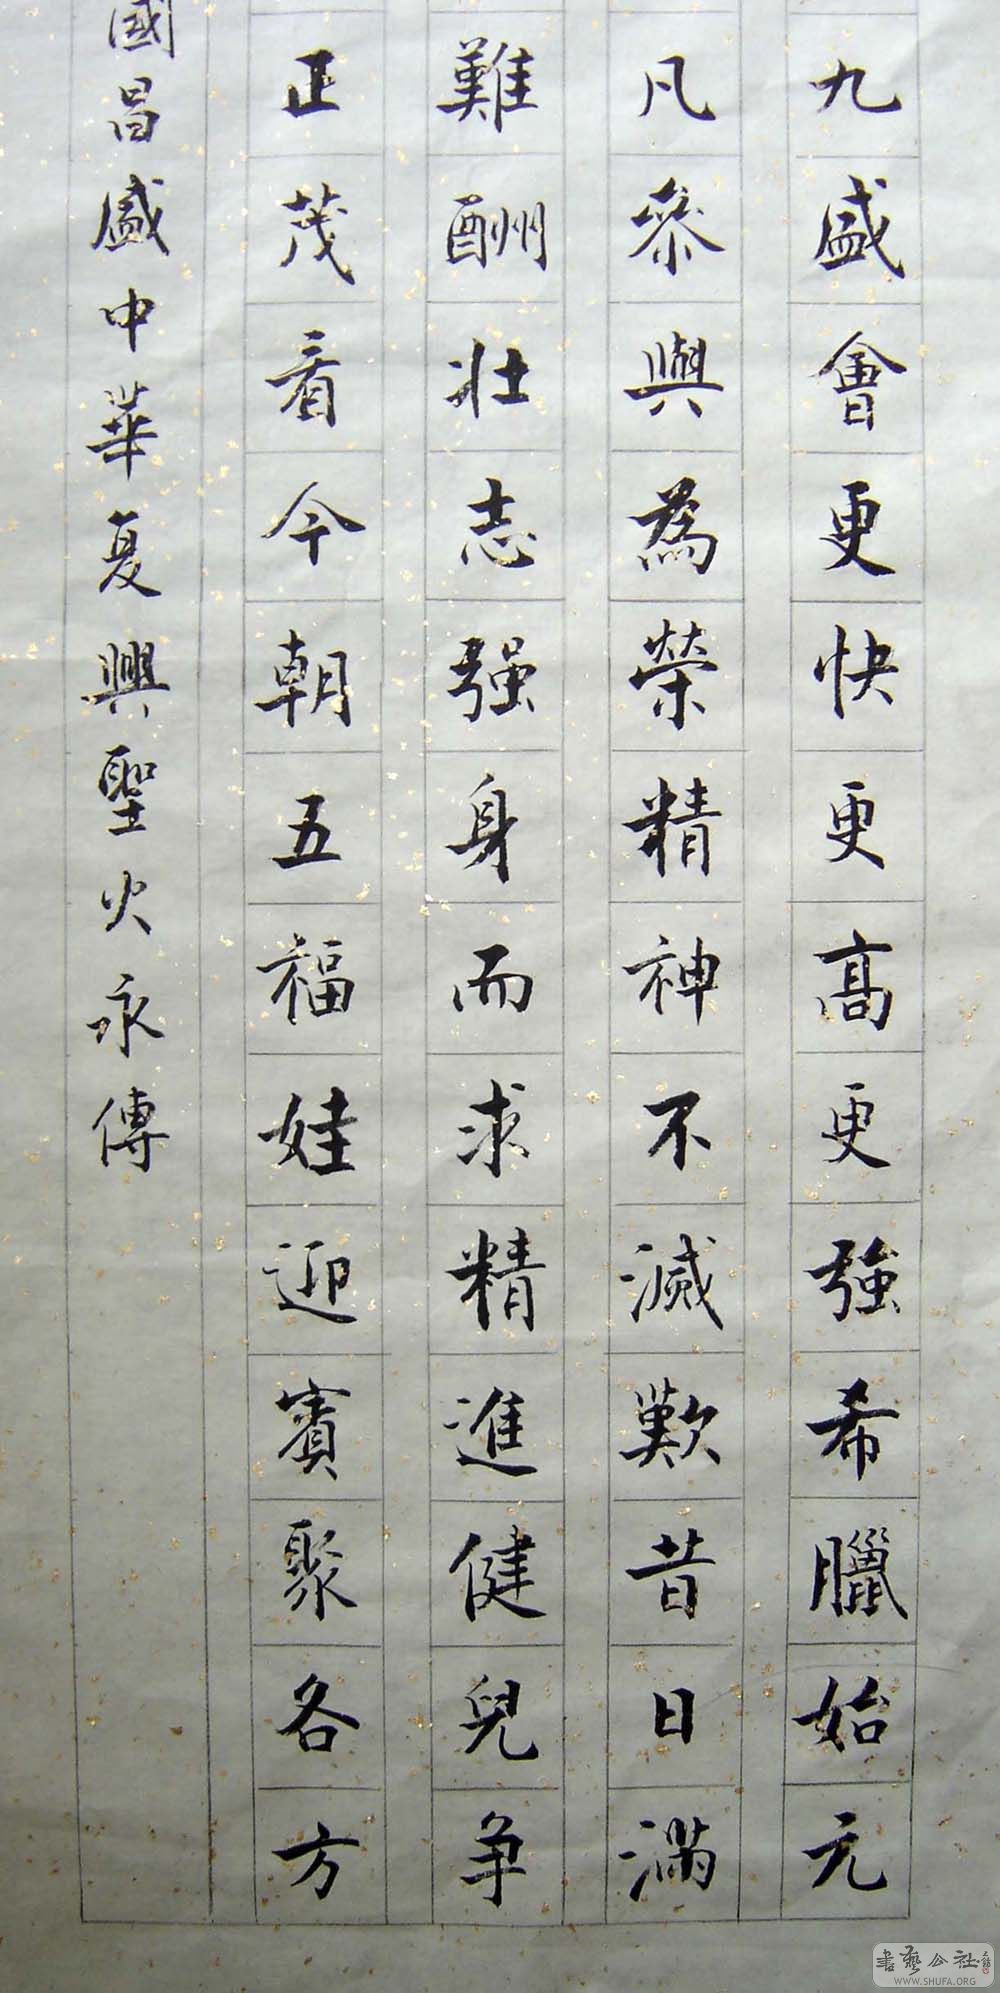 九盛會更快更高更強希臘始元
凡參與為榮精神不滅歎昔日滿
難酬壯志强身而求精進健兒爭
正茂看今朝五福娃迎賓聚各方
國昌盛中華复興聖火永傳
書藝公社
WWW.SHUFA.ORG